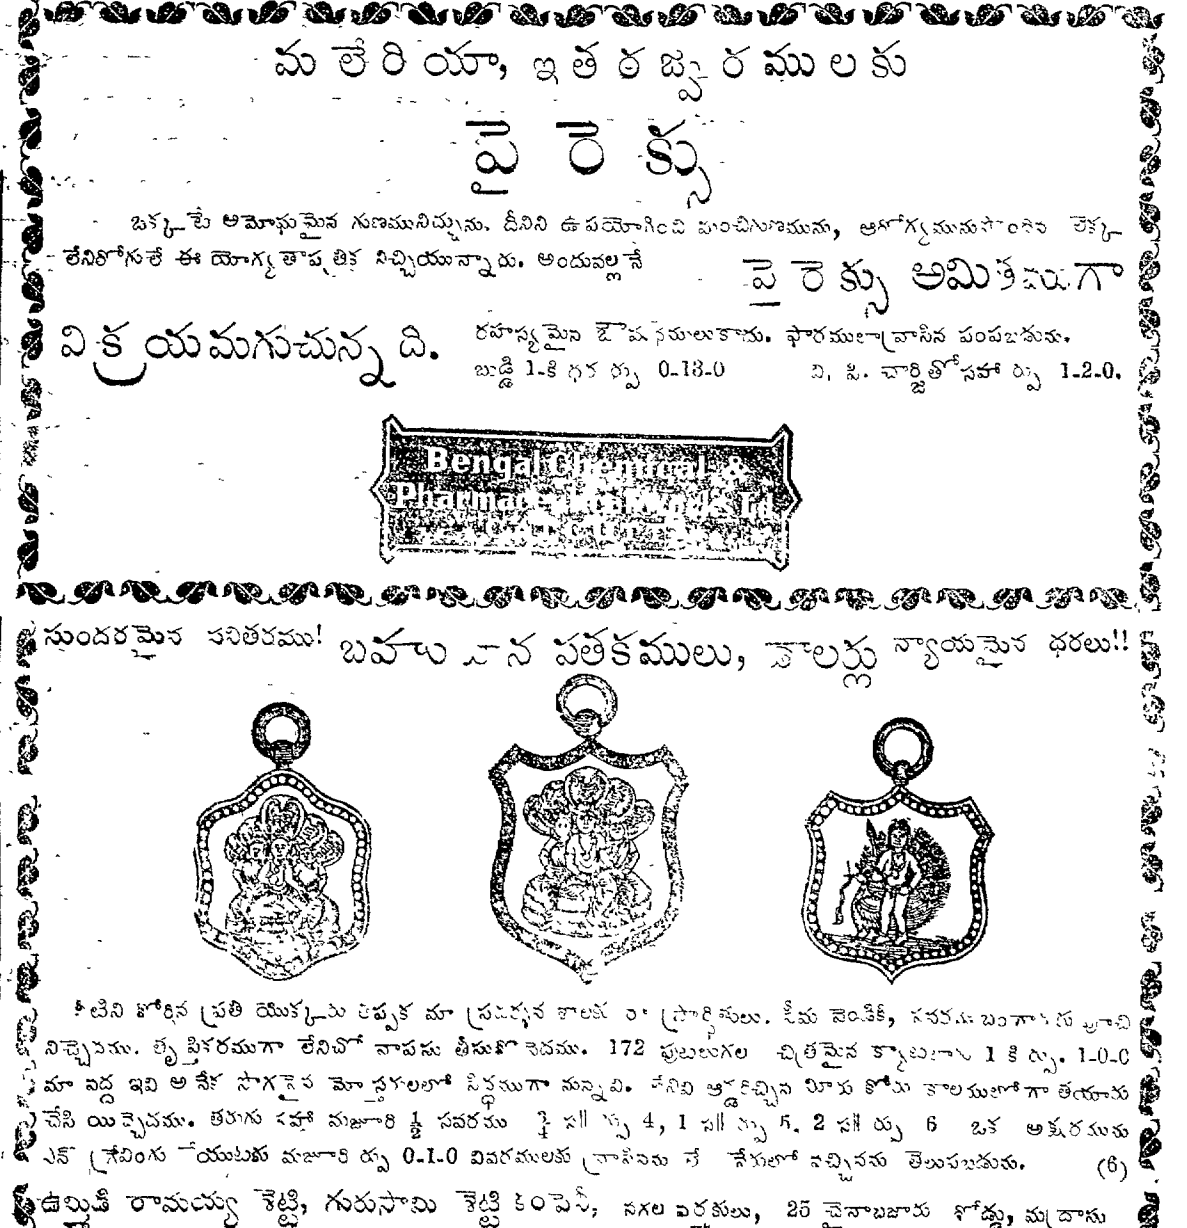 మలేరియా, ఇతరజ్వరములకు
పైరెక్సు
ఒక్కటే అమోఘమైన గుణమునిచ్చును. దీనిని ఉపయోగించి మంచిగుణమును, ఆరోగ్యమునుపొందిన లెక్క
లేనిరోగులే ఈ యోగ్యతాపత్రిక నిచ్చియున్నారు. అందువల్లనే
పైరెక్సు అమితముగా
విక్రయమగుచున్నది.
రహస్యమైన ఔషధములుకావు. ఫారములావ్రాసిన పంపబడును.
బుడ్డి 1-కి ధర ర్పు 0-13-0 వి. పి. చార్జితోసహా ర్పు 1-2-0.
Bengal Chemical &
Pharmaceutical Works Ld.
సుందరమైన పనితరము! బహుమాన పతకములు, డాలర్లు న్యాయమైన ధరలు!!
కోరిన ప్రతి యొక్కరు తప్పక మా ప్రదర్శన శాలకు రా ప్రార్థితులు. సీమ వెండికి,
నిచ్చెదము. తృప్తికరముగా లేనిచో వాపసు తీసుకొనెదము. 172 పుటలుగల చిత్రమైన క్యాటలాగు 1 కి ర్పు. 1-0-0
మా వద్ద ఇవి అనేక సొగసైన మోస్తరులలో సిద్ధముగా నున్నవి. ఆర్డరిచ్చిన మీరు కోరు కాలములోగా తయారు
చేసి యిచ్చెదము. తరుగు సహా మజూరి ½ సవరము ర్పు 4, 1 స॥ ర్పు 5, 2 స॥ ర్పు 6 ఒక అక్షరమును
ఎన్ గ్రేవింగు చేయుటకు మజూరి ర్పు 0-1-0 వివరములకు వ్రాసినను నేరులో వచ్చినను తెలుపబడును. (6)
ఉమ్మిడి రామయ్య శెట్టి, గురుసామి శెట్టి కంపెనీ, నగల వర్తకులు, 25 చైనాబజారు రోడ్డు, మదరాసు